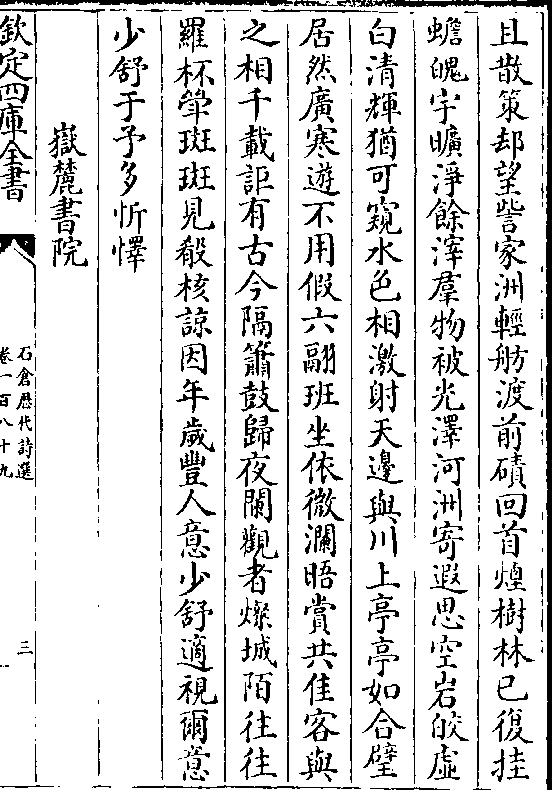 且散策却望訾家洲輕舫渡前磧回首煙樹林已復挂
蟾魄宇曠淨餘滓羣物被光澤河洲寄遐思空岩皎虛
白清輝猶可窺水色相激射天邊與川上亭亭如合璧
居然廣寒遊不用假六翮班坐依微瀾晤賞共佳客與
之相千載詎有古今隔簫鼓歸夜闌觀者燦城陌往往
羅杯犖斑斑見殽核諒因年歲豐人意少舒適視爾意
少舒于予多忻懌
嶽麓書院
欽定四庫全書
石倉歷代詩選
卷一百八十九
三